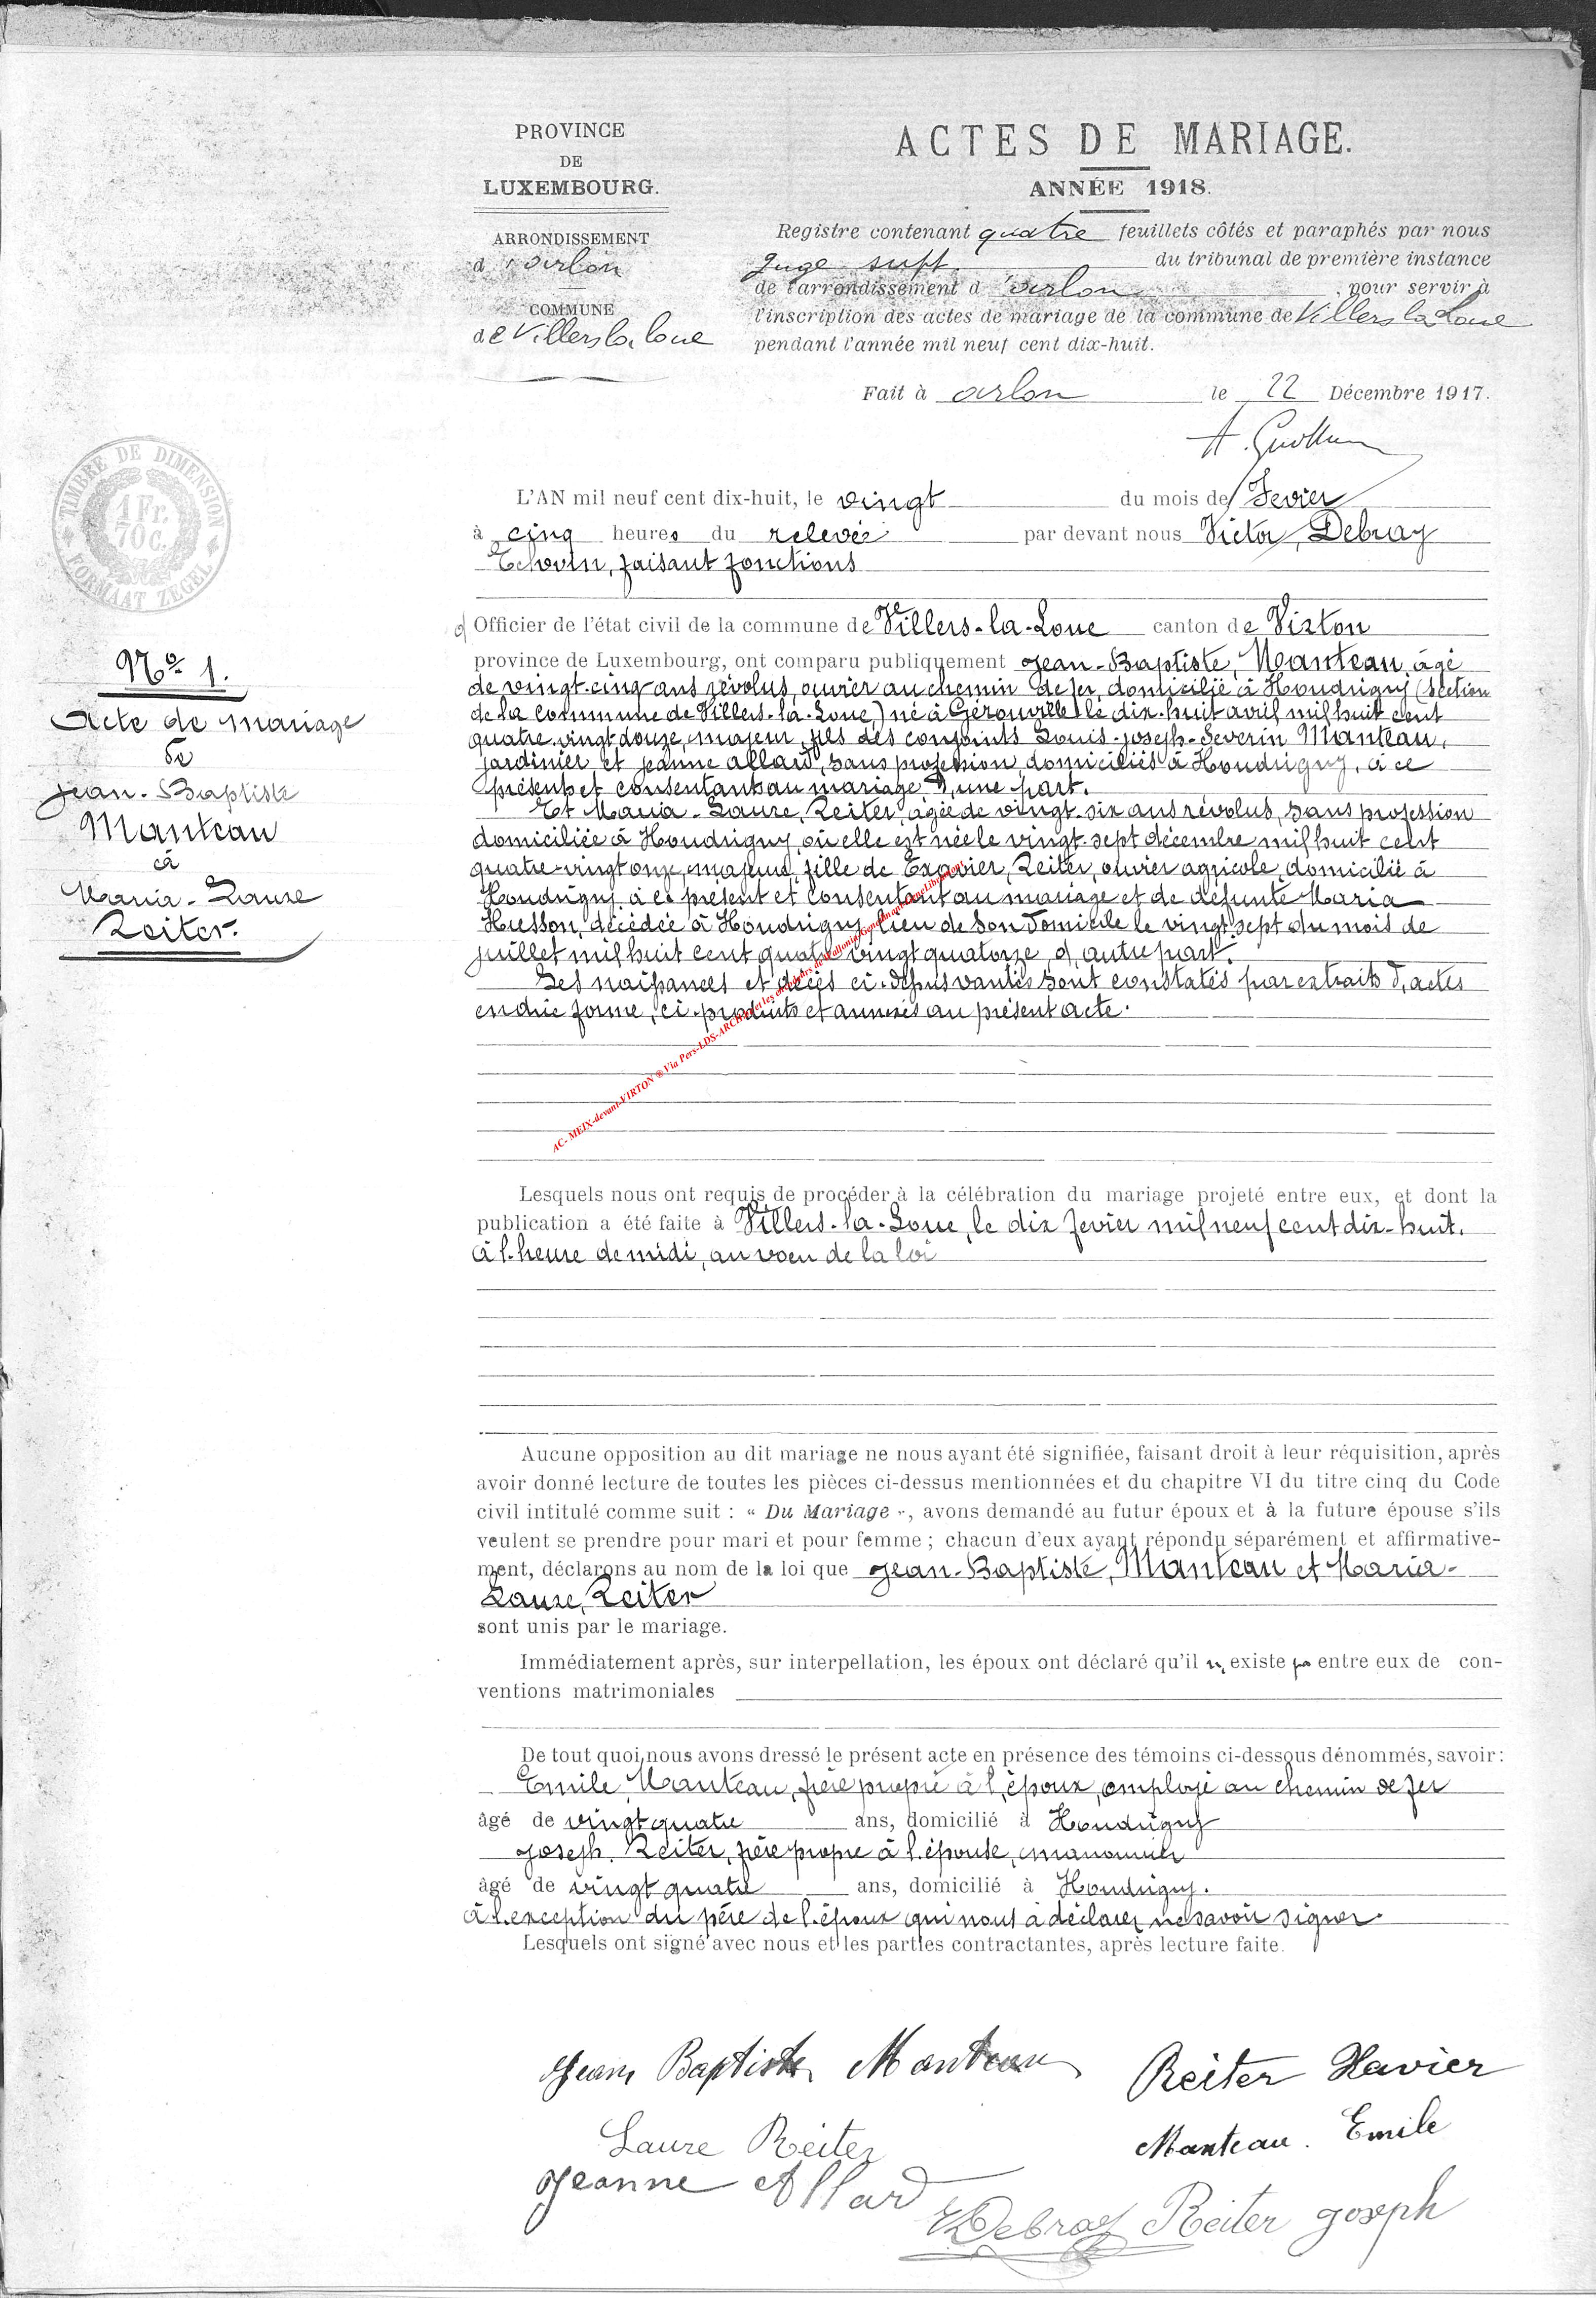 PROVINCE
DE
LUXEMBOURG.
ARRONDISSEMENT
d'arlon
COMMUNE
de Villers la loue
ACTES DE MARIAGE.
ANNÉE 1918.
Registre contenant quatre feuillets côtés et paraphés par nous
Juge supt. du tribunal de première instance
de l'arrondissement d'arlon, pour servir à
l'inscription des actes de mariage de la commune de Villers la Loue
pendant l'année mil neuf cent dix-huit.
Fait à arlon le 22 Décembre 1917.
TIMBRE DE DIMENSION
1 Fr.
70 C.
FORMAAT ZEGEL
No 1.
Acte de mariage
De
Jean-Baptiste
Manteau
à
Maria-Laure
Reiter.
L'AN mil neuf cent dix-huit, le vingt du mois de Fevier
à cinq heures du relevée par devant nous Victor, Debray
Echevin, faisant fonctions
d'Officier de l'état civil de la commune de Villers-la-Loue canton de Virton
province de Luxembourg, ont comparu publiquement Jean-Baptiste, Manteau, âgé
de vingt-cinq ans révolus, ouvrier au chemin de fer, domicilié à Houdrigny (section
de la commune de Villers-la-Loue) né à Gérouville le dix-huit avril mil huit cent
quatre-vingt douze, majeur, fils des conjoints Louis-Joseph-Severin Manteau,
jardinier et Jeanne Allard, sans profession, domiciliés à Houdrigny, à ce
présents et consentants au mariage D'une part.
Et Maria-Laure, Reiter, âgée de vingt-six ans révolus, sans profession
domiciliée à Houdrigny, où elle est née le vingt-sept décembre mil huit cent
quatre-vingt onze, majeure, fille de Exavier, Reiter, ouvrier agricole, domicilié à
Houdrigny, à ce présent et consentant au mariage et de défunte Maria
Husson, décédée à Houdrigny, lieu de son domicile le vingt sept du mois de
juillet mil huit cent quatre vingt quatorze, d'autre part.
Les naissances et décès ci-dessus vantés sont constatés par extraits d'actes
en due forme, ci-produits et annexés au présent acte.
Lesquels nous ont requis de procéder à la célébration du mariage projeté entre eux, et dont la
publication a été faite à Villers-la-Loue, le dix fevier mil neuf cent dix-huit.
à l'heure de midi, au voeu de la loi
Aucune opposition au dit mariage ne nous ayant été signifiée, faisant droit à leur réquisition, après
avoir donné lecture de toutes les pièces ci-dessus mentionnées et du chapitre VI du titre cinq du Code
civil intitulé comme suit : « Du Mariage », avons demandé au futur époux et à la future épouse s'ils
veulent se prendre pour mari et pour femme ; chacun d'eux ayant répondu séparément et affirmative-
ment, déclarons au nom de la loi que Jean-Baptiste, Manteau et Maria-
Laure, Reiter
sont unis par le mariage.
Immédiatement après, sur interpellation, les époux ont déclaré qu'il n'existe pas entre eux de con-
ventions matrimoniales
De tout quoi nous avons dressé le présent acte en présence des témoins ci-dessous dénommés, savoir :
Emile, Manteau, frère propre à l'époux, employé au chemin de fer
âgé de vingt quatre ans, domicilié à Houdrigny
Joseph, Reiter, frère propre à l'épouse, manouvrier
âgé de vingt quatre ans, domicilié à Houdrigny.
à l'exception du père de l'époux qui nous a déclarer ne savoir signer.
Lesquels ont signé avec nous et les parties contractantes, après lecture faite.
Jean Baptiste Manteau
Reiter Xavier
Laure Reiter
Manteau Emile
Jeanne Allard
VDebray
Reiter Joseph